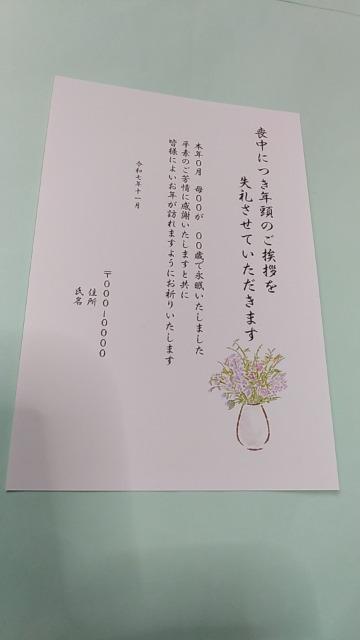 喪中につき年頭のご挨拶を
失礼させていただきます
本年〇月 母〇〇が 〇〇歳で永眠いたしました
平素のご芳情に感謝いたしますと共に
皆様によいお年が訪れますようにお祈りいたします
令和七年十一月
〒〇〇〇-〇〇〇〇
住所
氏名